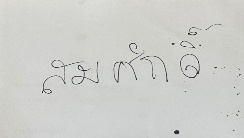 สมศักดิ์